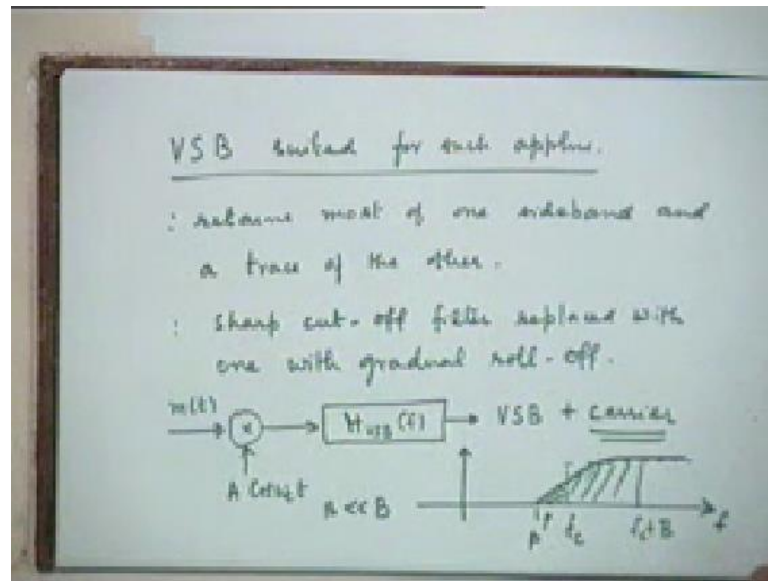 VSB suited for such applns.
: retains most of one sideband and
a trace of the other.
: sharp cut-off filter replaced with
one with gradual roll-off.
m(t) × H_VSB(f) VSB + carrier
A Cosω_ct β << B β f_c f_c+B f